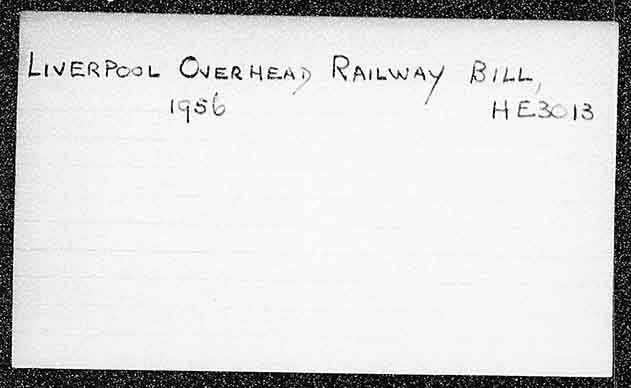 LIVERPOOL OVERHEAD RAILWAY BILL,
1956 HE3013